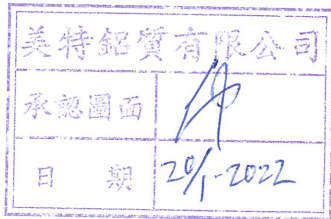 美特鋁質有限公司
承認圖面
日期 20/1-2022